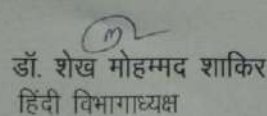 डॉ. शेख मोहम्मद शाकिर
हिंदी विभागाध्यक्ष